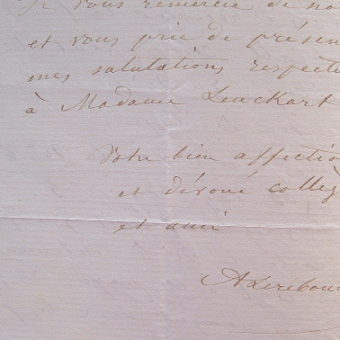 Je vous remercie de no
et vous prie de présen
mes salutations respecte
à Madame Leuckart
Votre bien affectio
et dévoué colleg
et ami